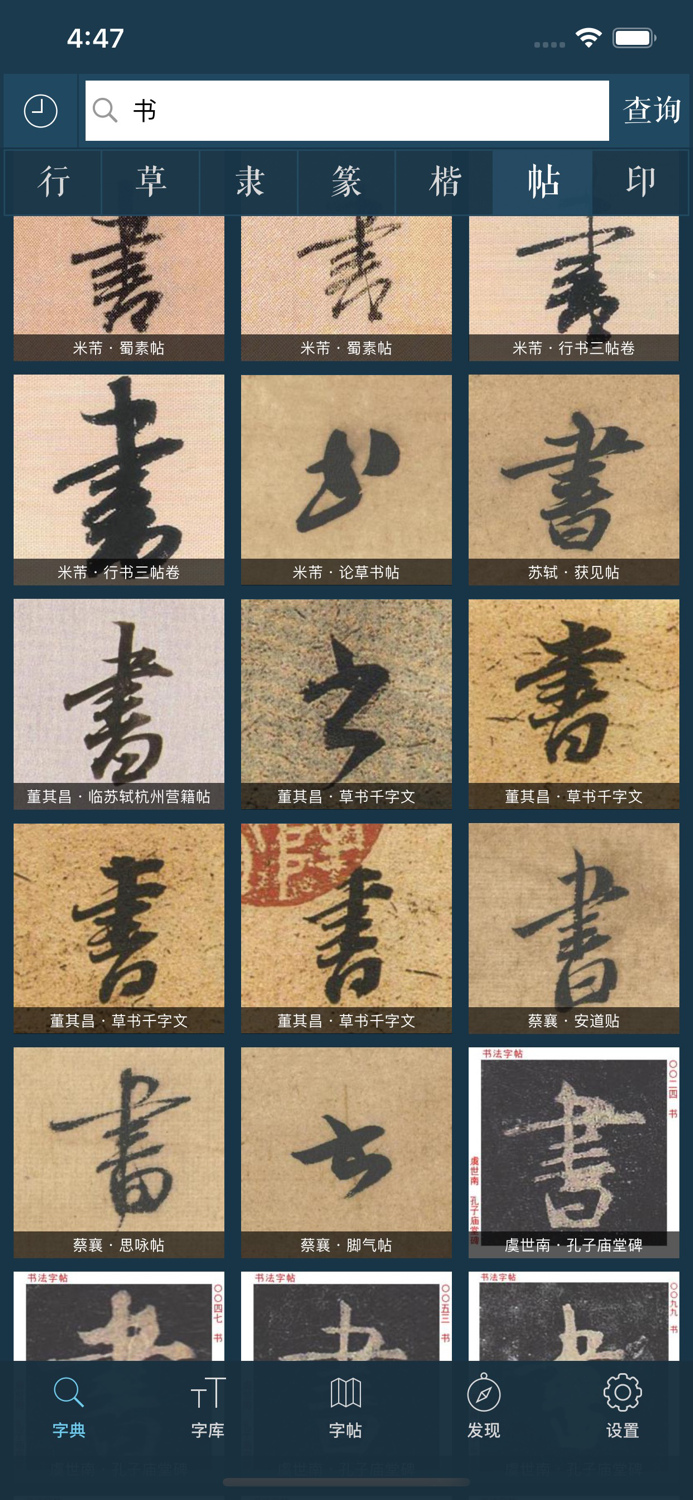 4:47
书
查询
行 草 隶 篆 楷 帖 印
書 書 書
米芾·蜀素帖 米芾·蜀素帖 米芾·行书三帖卷
書 书 書
米芾·行书三帖卷 米芾·论草书帖 苏轼·获见帖
書 书 書
董其昌·临苏轼杭州营籍帖 董其昌·草书千字文 董其昌·草书千字文
書 書 書
董其昌·草书千字文 董其昌·草书千字文 蔡襄·安道贴
書 书
蔡襄·思咏帖 蔡襄·脚气帖
书法字帖
〇〇二四 书
書
虞世南 孔子庙堂碑
虞世南·孔子庙堂碑
书法字帖 书法字帖 书法字帖
〇〇四七 书 〇〇五三 书 〇〇九九 书
書 書 書
字典 字库 字帖 发现 设置